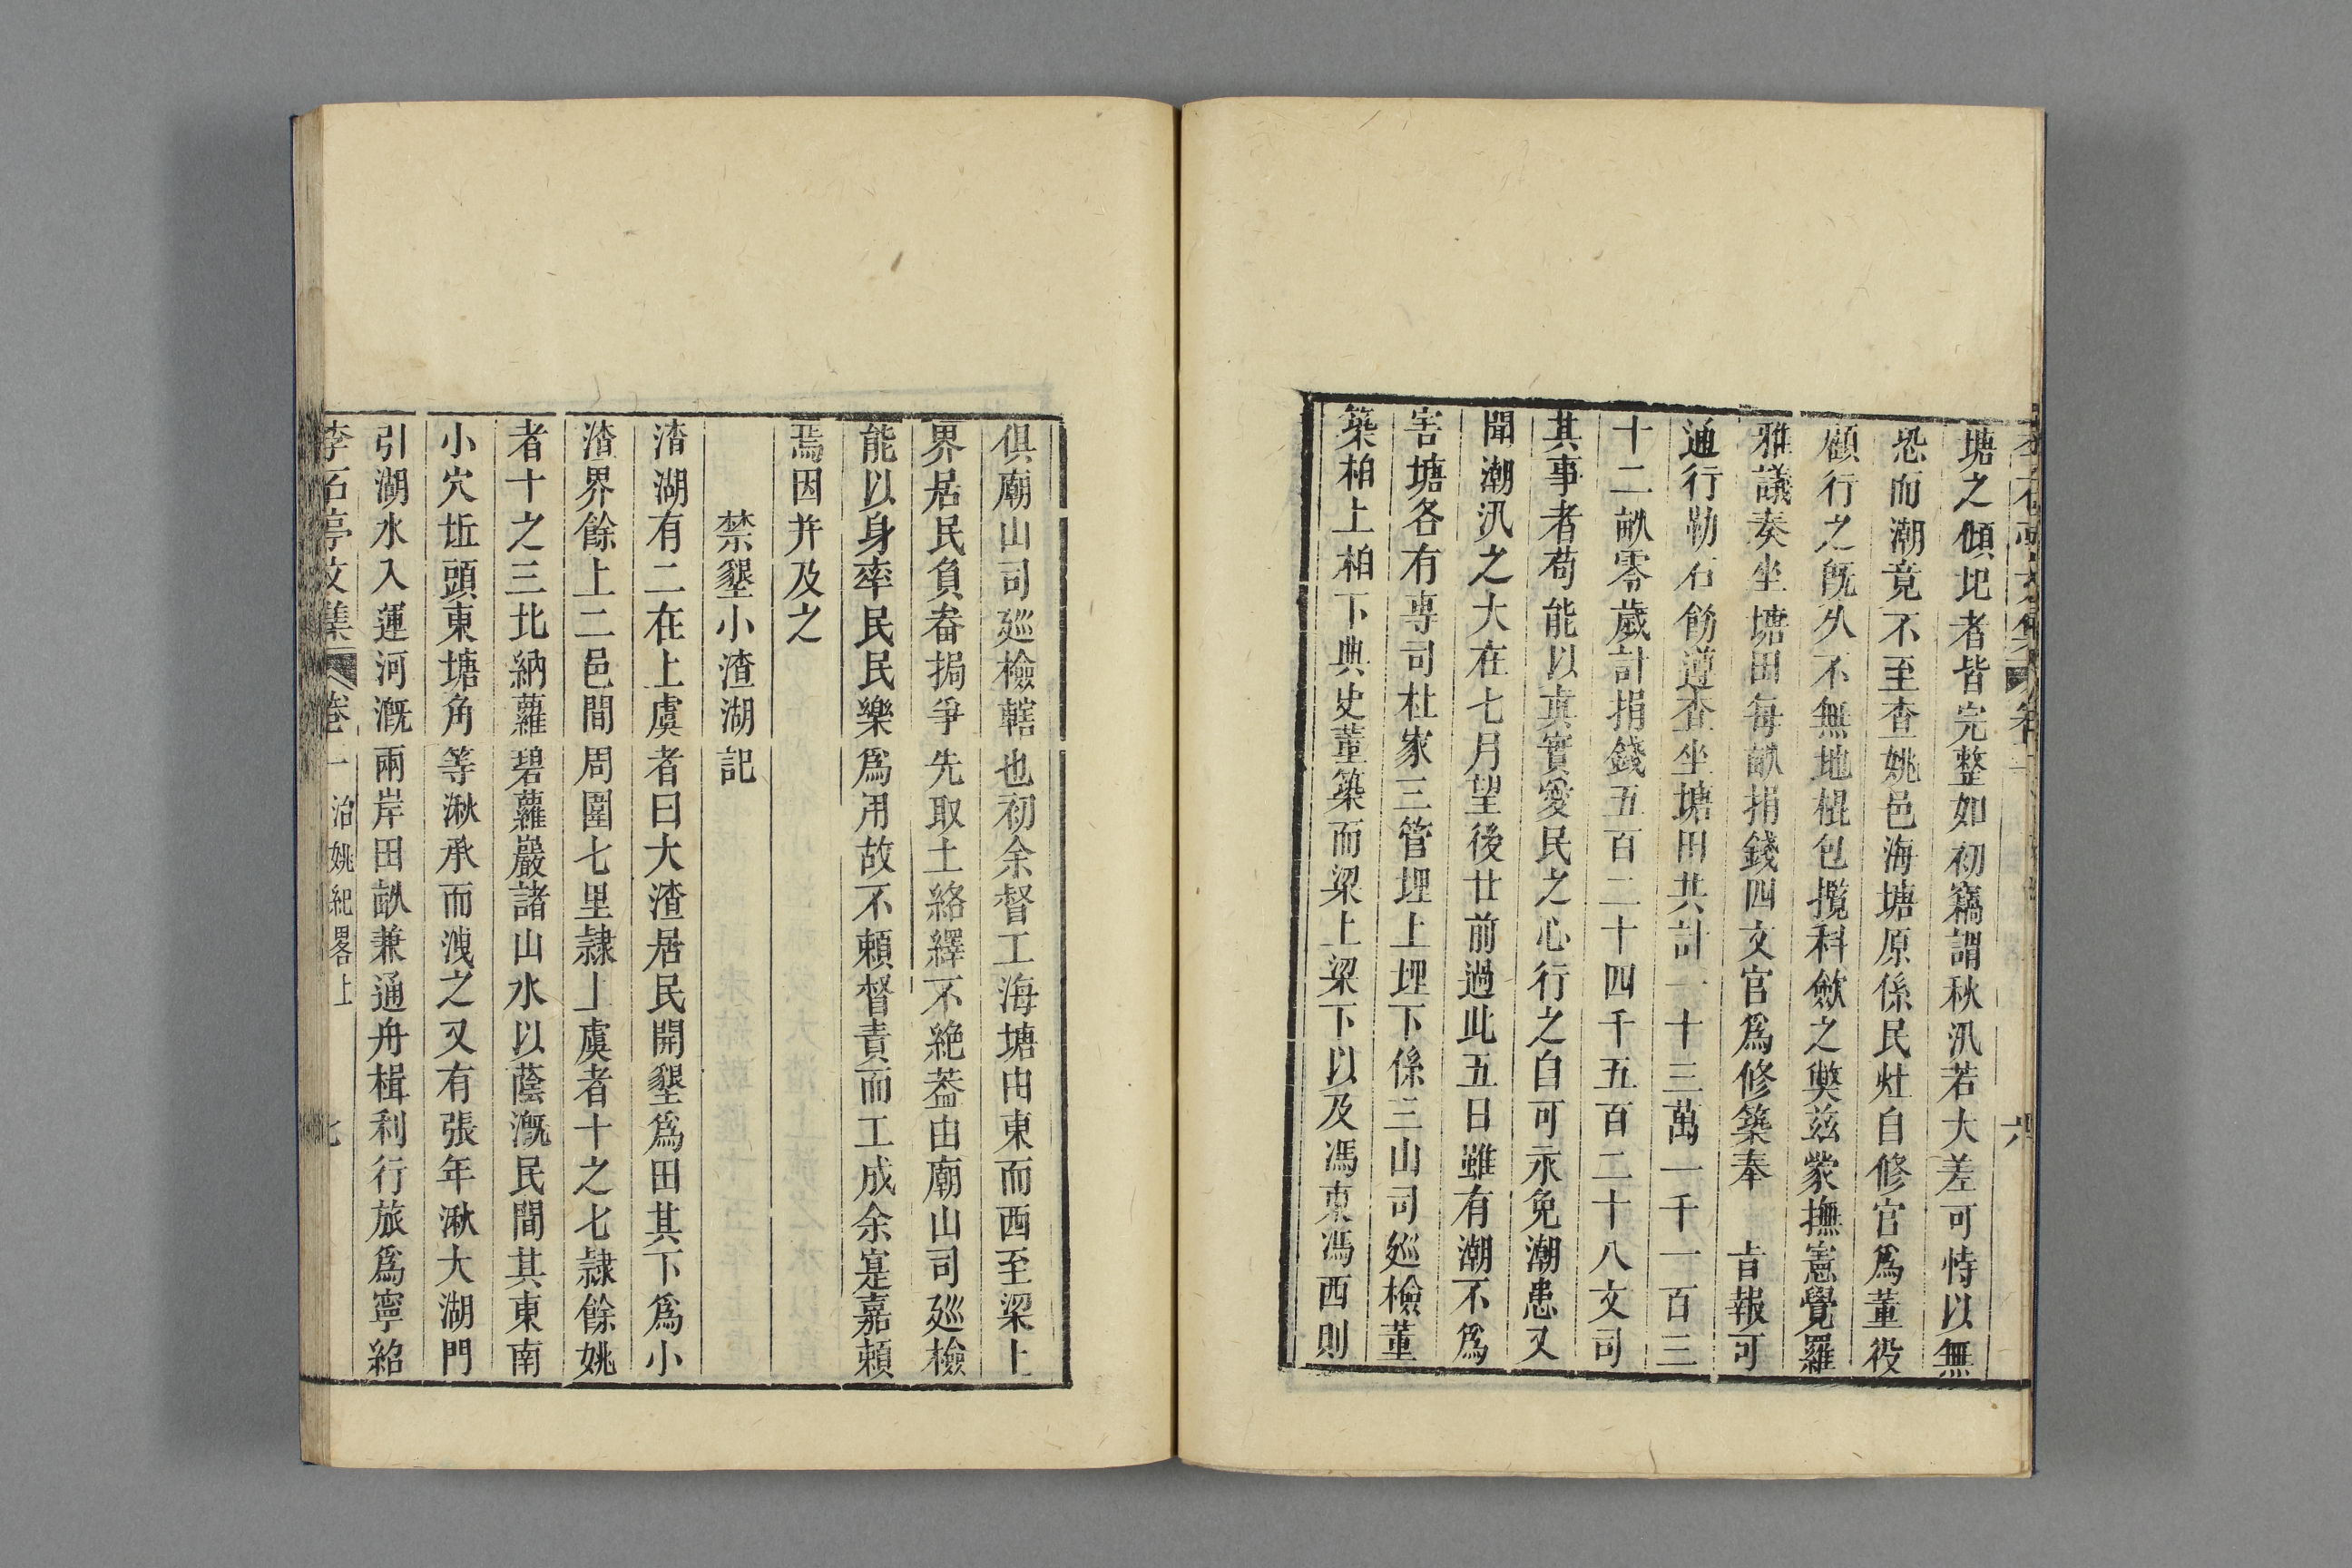 塘之傾圮者皆完整如初竊謂秋汛若大差可恃以無
恐而潮竟不至查姚邑海塘原係民灶自修官爲董役
顧行之旣久不無地棍包攬科斂之獘兹蒙撫憲覺羅
雅議奏坐塘田每畝捐錢四文官爲修築奉　旨報可
通行勒石飭遵查坐塘田共計一十三萬一千一百三
十二畝零歲計捐錢五百二十四千五百二十八文司
其事者苟能以真實愛民之心行之自可永免潮患又
聞潮汛之大在七月望後廿前過此五日雖有潮不爲
害塘各有專司杜家三管埋上埋下係三山司廵檢董
築柏上柏下典史董築而梁上梁下以及馮東馮西則
俱廟山司廵檢轄也初余督工海塘由東而西至梁上
界居民負畚挶爭先取土絡繹不絶葢由廟山司廵檢
能以身率民民樂爲用故不頼督責而工成余寔嘉頼
焉因并及之
禁墾小渣湖記
渣湖有二在上虞者曰大渣居民開墾爲田其下爲小
渣界餘上二邑間周圍七里隷上虞者十之七隷餘姚
者十之三北納蘿碧蘿巖諸山水以蔭漑民間其東南
小穴坵頭東塘角等湫承而洩之又有張年湫大湖門
引湖水入運河漑兩岸田畝兼通舟楫利行旅爲寧紹
李石亭文集 卷一 治姚紀畧上 七